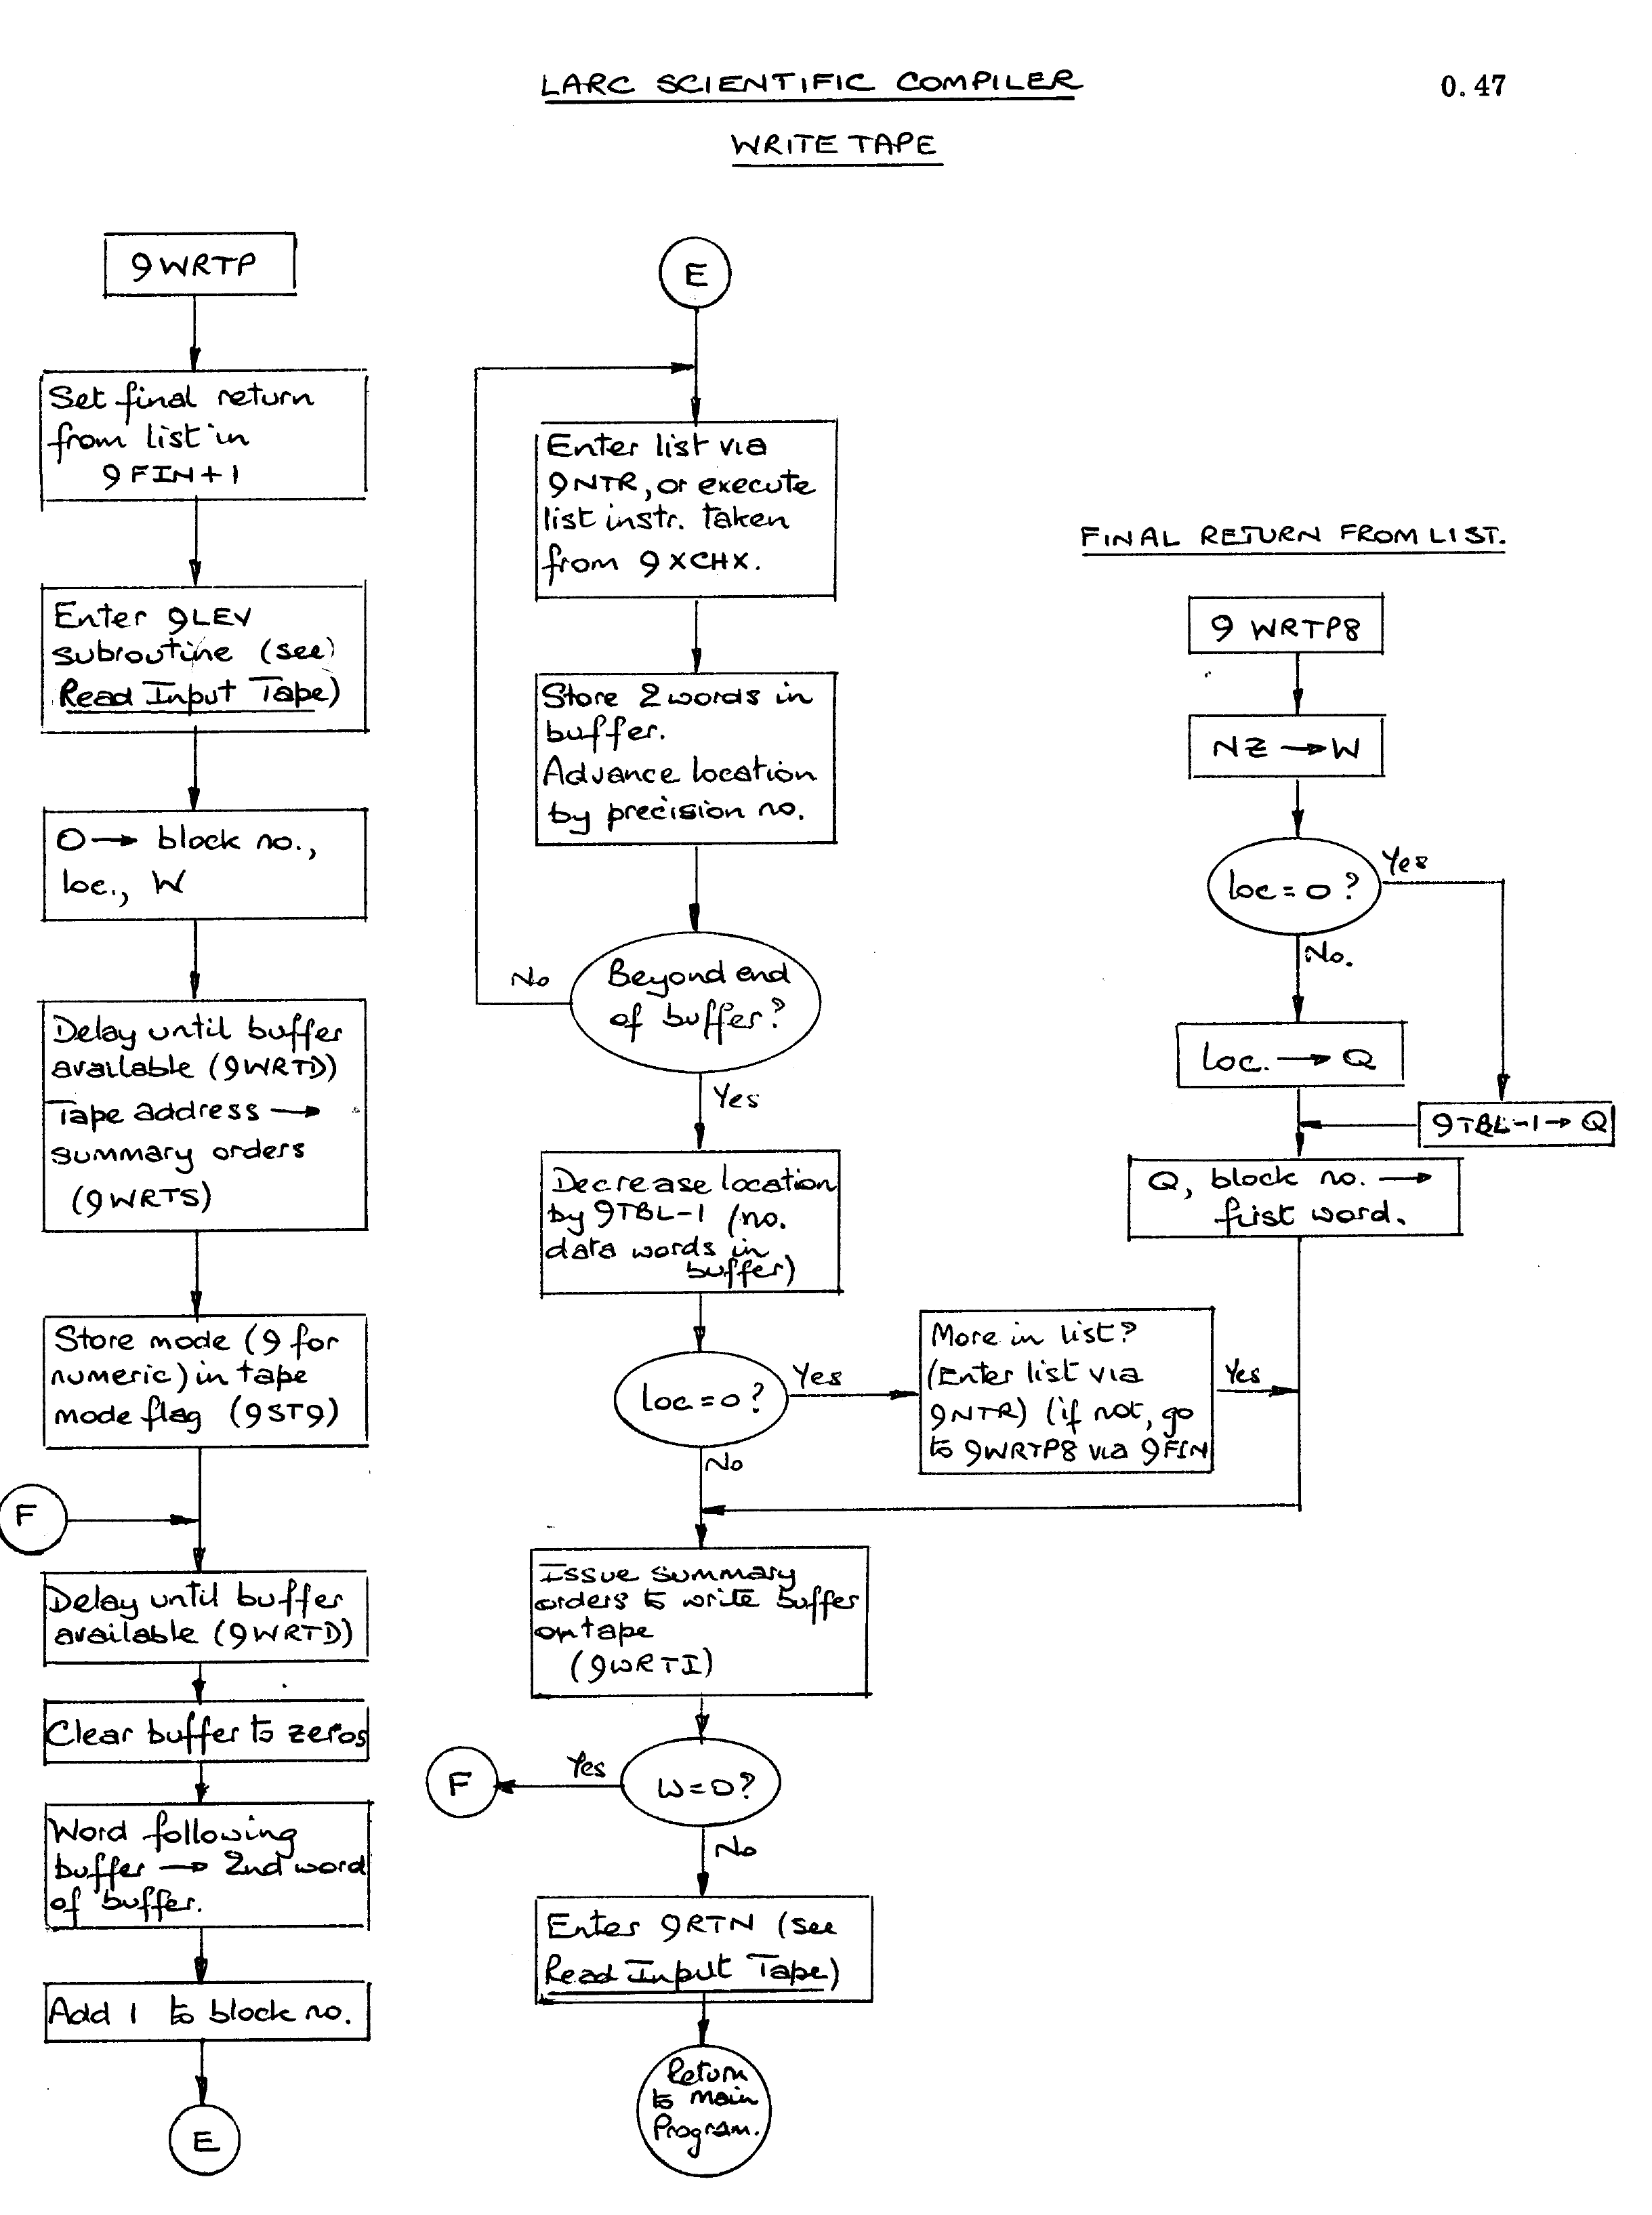 LARC SCIENTIFIC COMPILER
0.47
WRITE TAPE
9WRTP
Set final return
from list in
9FIN+1
Enter 9LEV
subroutine (see
Read Input Tape)
0→ block no.,
loc., W
Delay until buffer
available (9WRTD)
Tape address →
summary orders
(9WRTS)
Store mode (9 for
numeric) in tape
mode flag (9ST9)
F
Delay until buffer
available (9WRTD)
Clear buffer to zeros
Word following
buffer → 2nd word
of buffer.
Add 1 to block no.
E
E
Enter list via
9NTR, or execute
list instr. taken
from 9XCHX.
Store 2 words in
buffer.
Advance location
by precision no.
Beyond end
of buffer?
No
Yes
Decrease location
by 9TBL-1 (no.
data words in
buffer)
loc=0?
Yes
No
More in list?
(Enter list via
9NTR) (if not, go
to 9WRTP8 via 9FIN
Yes
Issue summary
orders to write buffer
on tape
(9WRTI)
W=0?
Yes
F
No
Enter 9RTN (see
Read Input Tape)
Return
to main
Program.
FINAL RETURN FROM LIST.
9 WRTP8
NZ → W
loc=0?
Yes
No.
loc. → Q
9TBL-1→Q
Q, block no. →
first word.